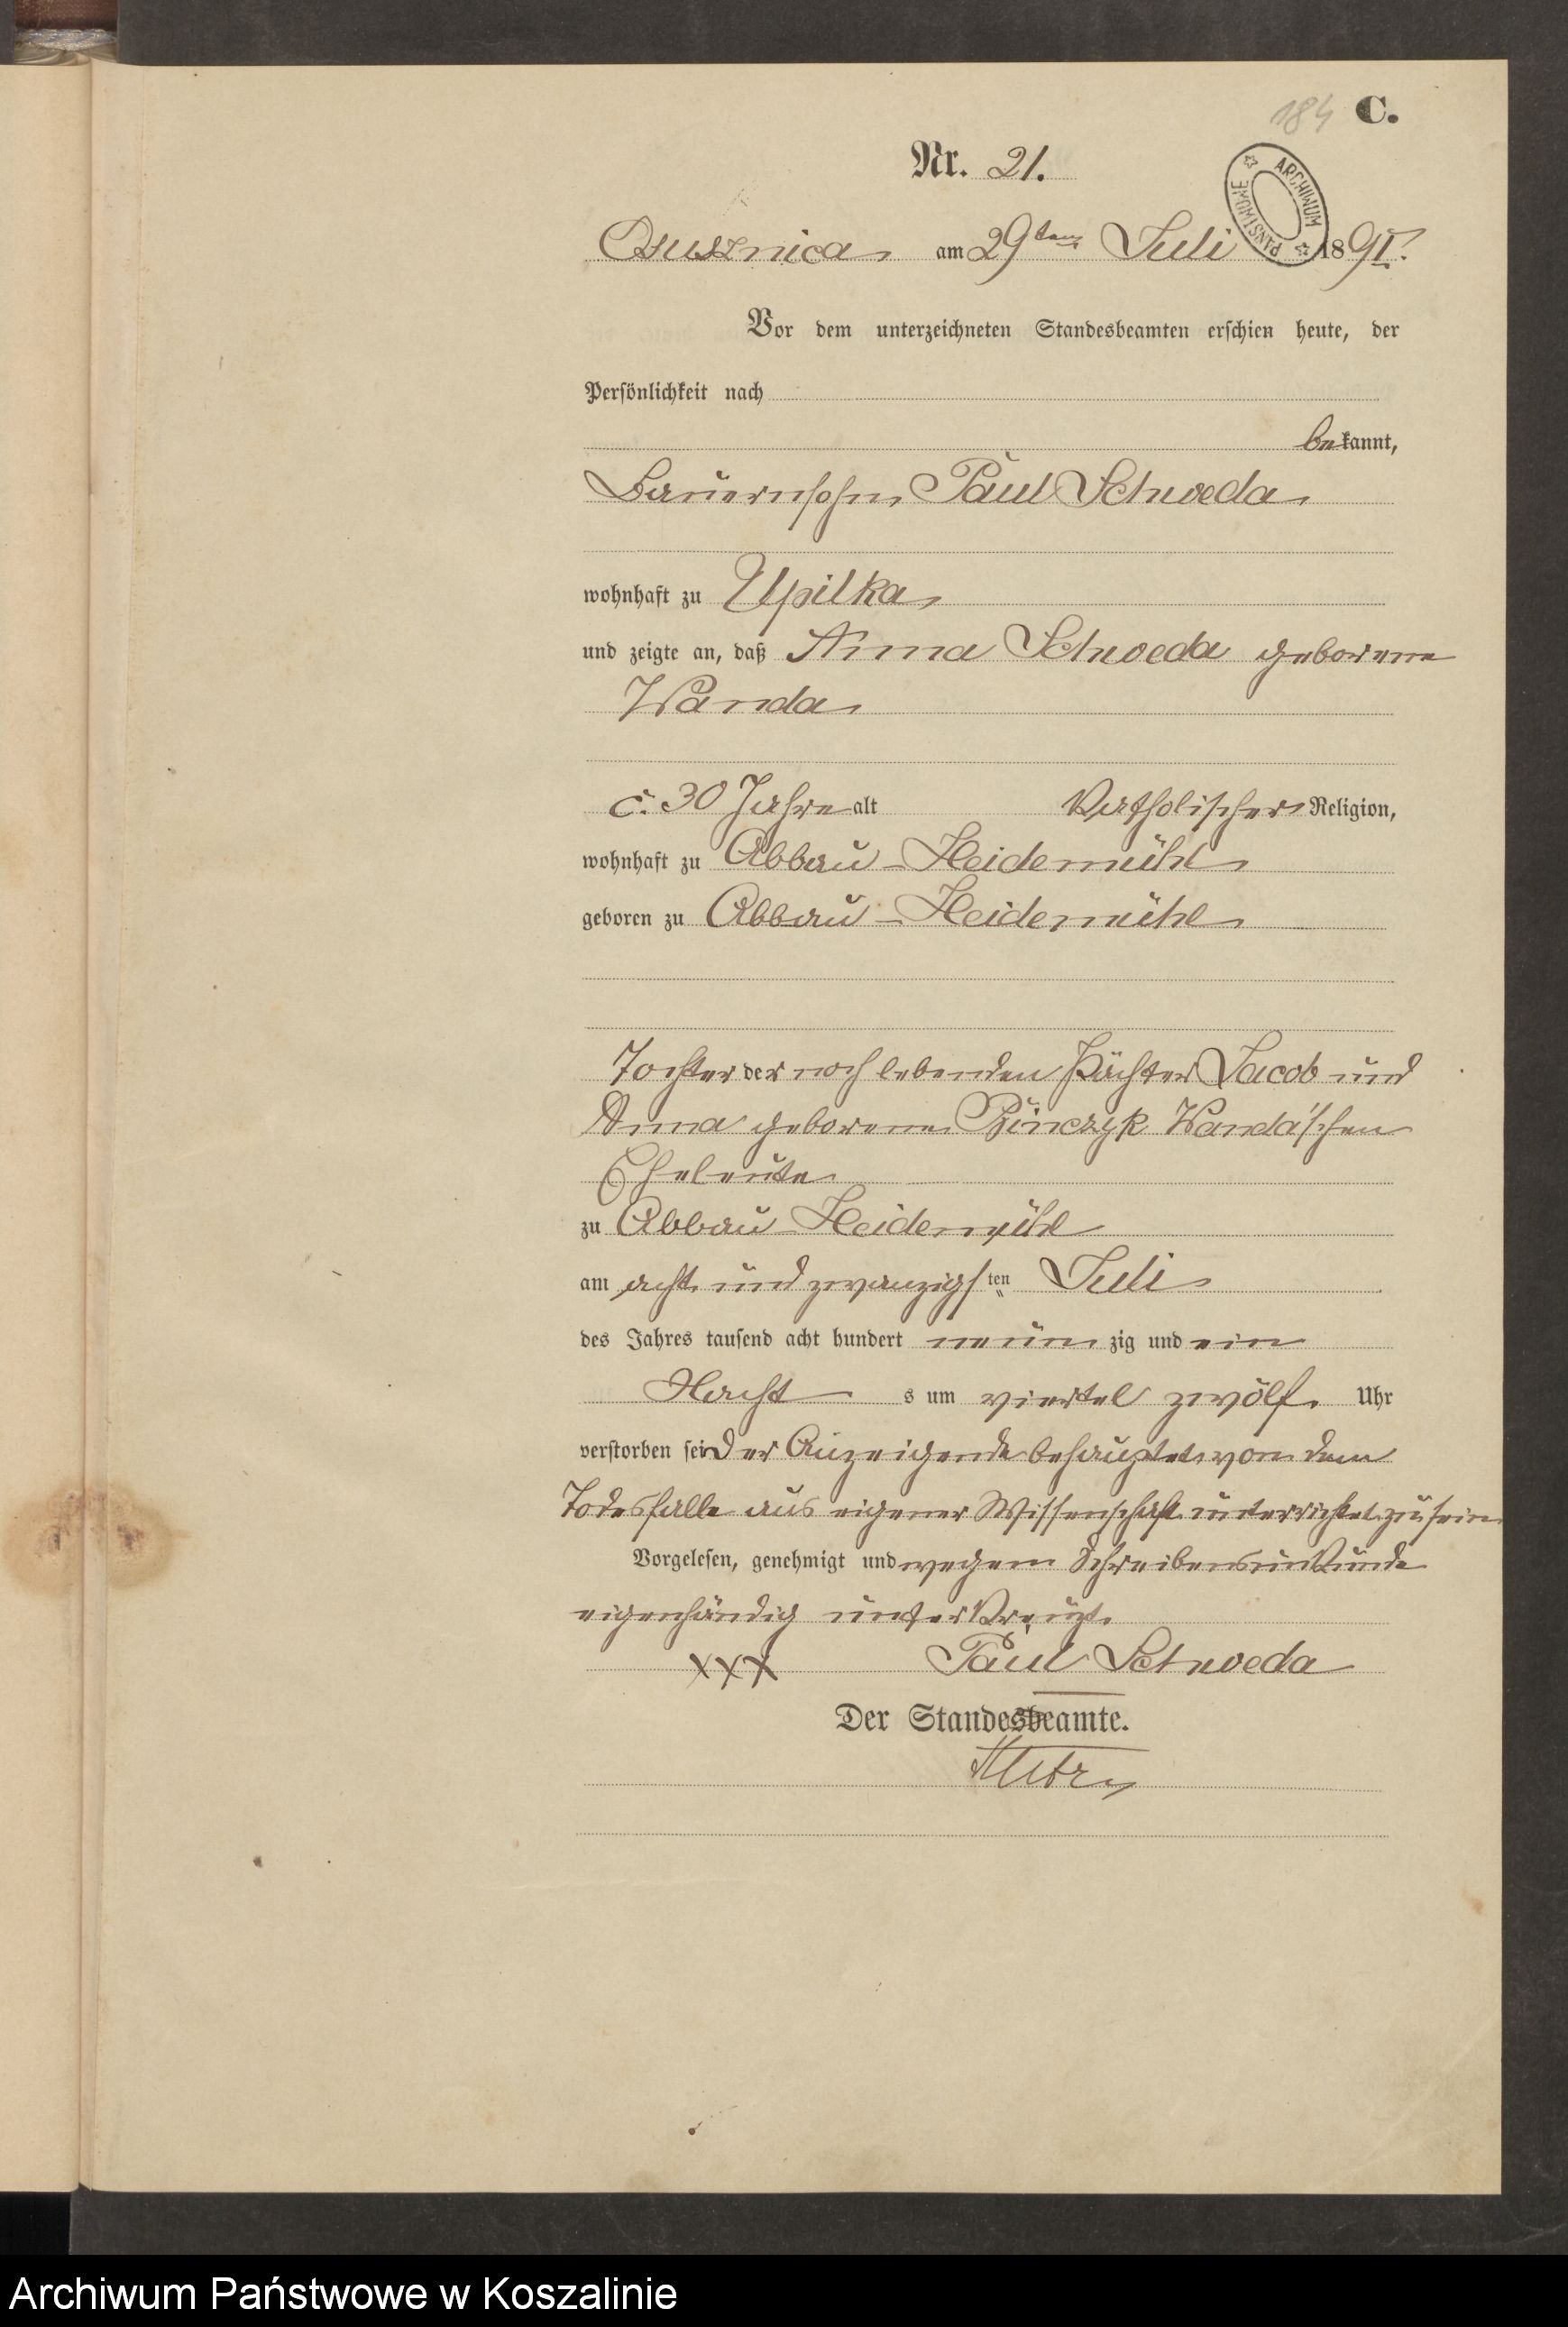 184 C.
Nr. 21.
ARCHIWUM PAŃSTWOWE
Ossusznica am 29ten Juli 1891.
Vor dem unterzeichneten Standesbeamten erschien heute, der
Persönlichkeit nach
bekannt,
Bauernsohn Paul Schweda
wohnhaft zu Upilka
und zeigte an, daß Anna Schweda geborene
Wanda
c. 30 Jahre alt Katholischer Religion,
wohnhaft zu Abbau-Heidemühl
geboren zu Abbau-Heidemühl
Tochter der noch lebenden Pächter Jacob und
Anna geborene Wanda'schen
Eheleute
zu Abbau-Heidemühl
am acht und zwanzigsten Juli
des Jahres tausend acht hundert neun zig und ein
Nacht s um viertel zwölf Uhr
verstorben sei der Anzeigende behauptet von dem
Todesfalle aus eigener Wissenschaft unterrichtet zu sein
Vorgelesen, genehmigt und wegen Schreibensunkunde
eigenhändig unterkreuzt.
xxx Paul Schweda
Der Standesbeamte.
Archiwum Państwowe w Koszalinie